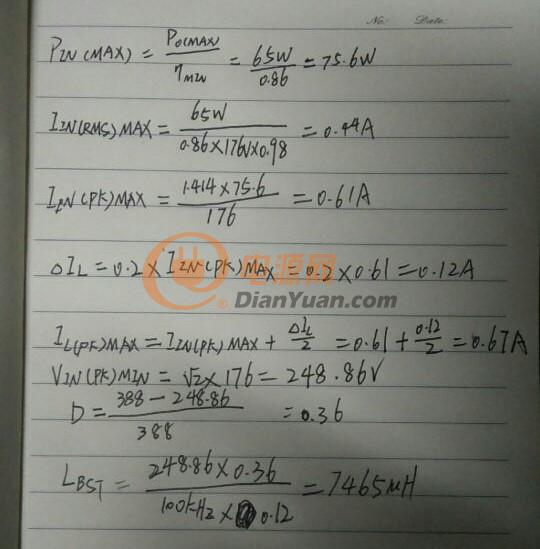 No: Date:
PIN(MAX) = PO(MAX) / ηMIN = 65W / 0.86 = 75.6W
IIN(RMS)MAX = 65W / 0.86×176V×0.98 = 0.44A
IIN(PK)MAX = 1.414×75.6 / 176 = 0.61A
ΔIL = 0.2×IIN(PK)MAX = 0.2×0.61 = 0.12A
电源网
DianYuan.com
IL(PK)MAX = IIN(PK)MAX + ΔIL / 2 = 0.61 + 0.12 / 2 = 0.67A
VIN(PK)MIN = √2×176 = 248.86V
D = 388 - 248.86 / 388 = 0.36
LBST = 248.86×0.36 / 100kHz×0.12 = 7465μH